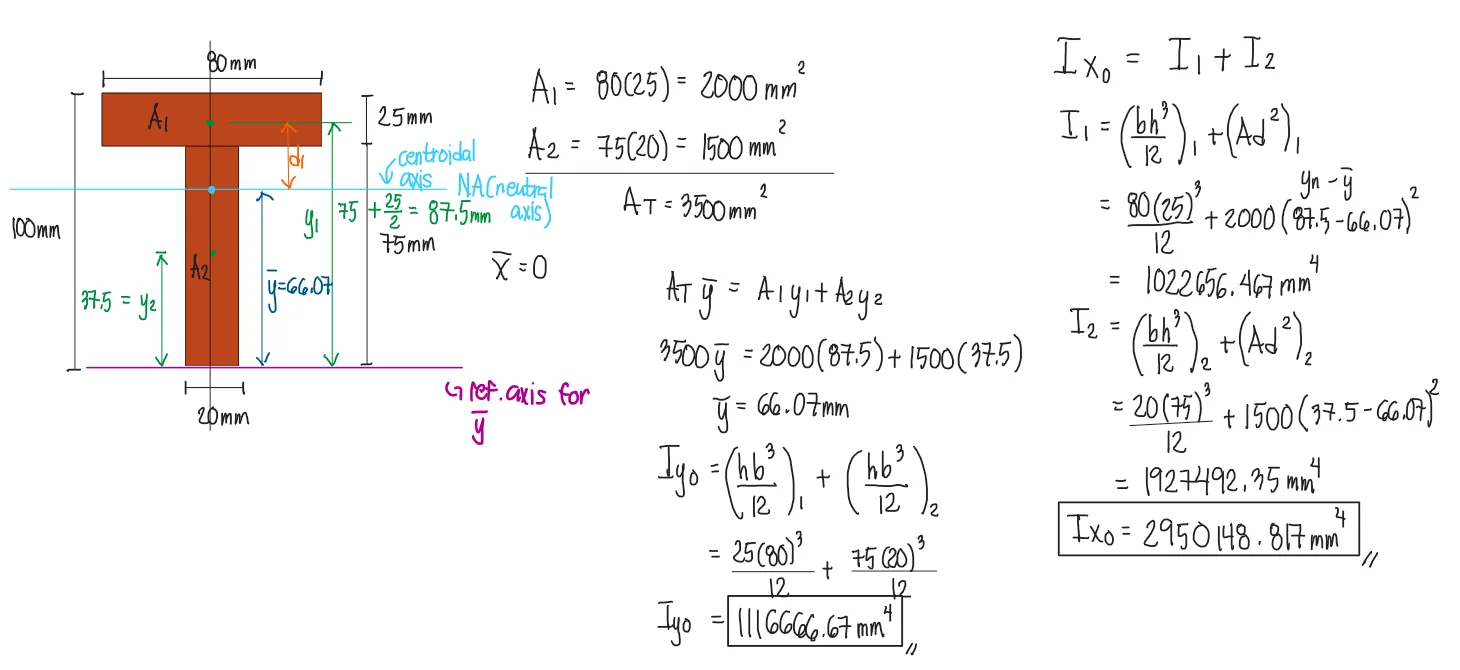 80mm
A₁
25mm
d₁
centroidal
axis
NA(neutral
axis)
y₁
75 + 25/2 = 87.5mm
100mm
75mm
A₂
37.5 = y₂
ȳ=66.07
ref. axis for
ȳ
20mm
A₁ = 80(25) = 2000 mm²
A₂ = 75(20) = 1500 mm²
A_T = 3500 mm²
x̄ = 0
A_T ȳ = A₁y₁ + A₂y₂
3500 ȳ = 2000(87.5) + 1500(37.5)
ȳ = 66.07mm
I̅y₀ = (hb³/12)₁ + (hb³/12)₂
= 25(80)³/12 + 75(20)³/12
I̅y₀ = 1116666.67 mm⁴
I̅x₀ = I₁ + I₂
I₁ = (bh³/12)₁ + (Ad²)₁
yn - ȳ
= 80(25)³/12 + 2000(87.5-66.07)²
= 1022656.467 mm⁴
I₂ = (bh³/12)₂ + (Ad²)₂
= 20(75)³/12 + 1500(37.5-66.07)²
= 1927492.35 mm⁴
I̅x₀ = 2950148.817 mm⁴